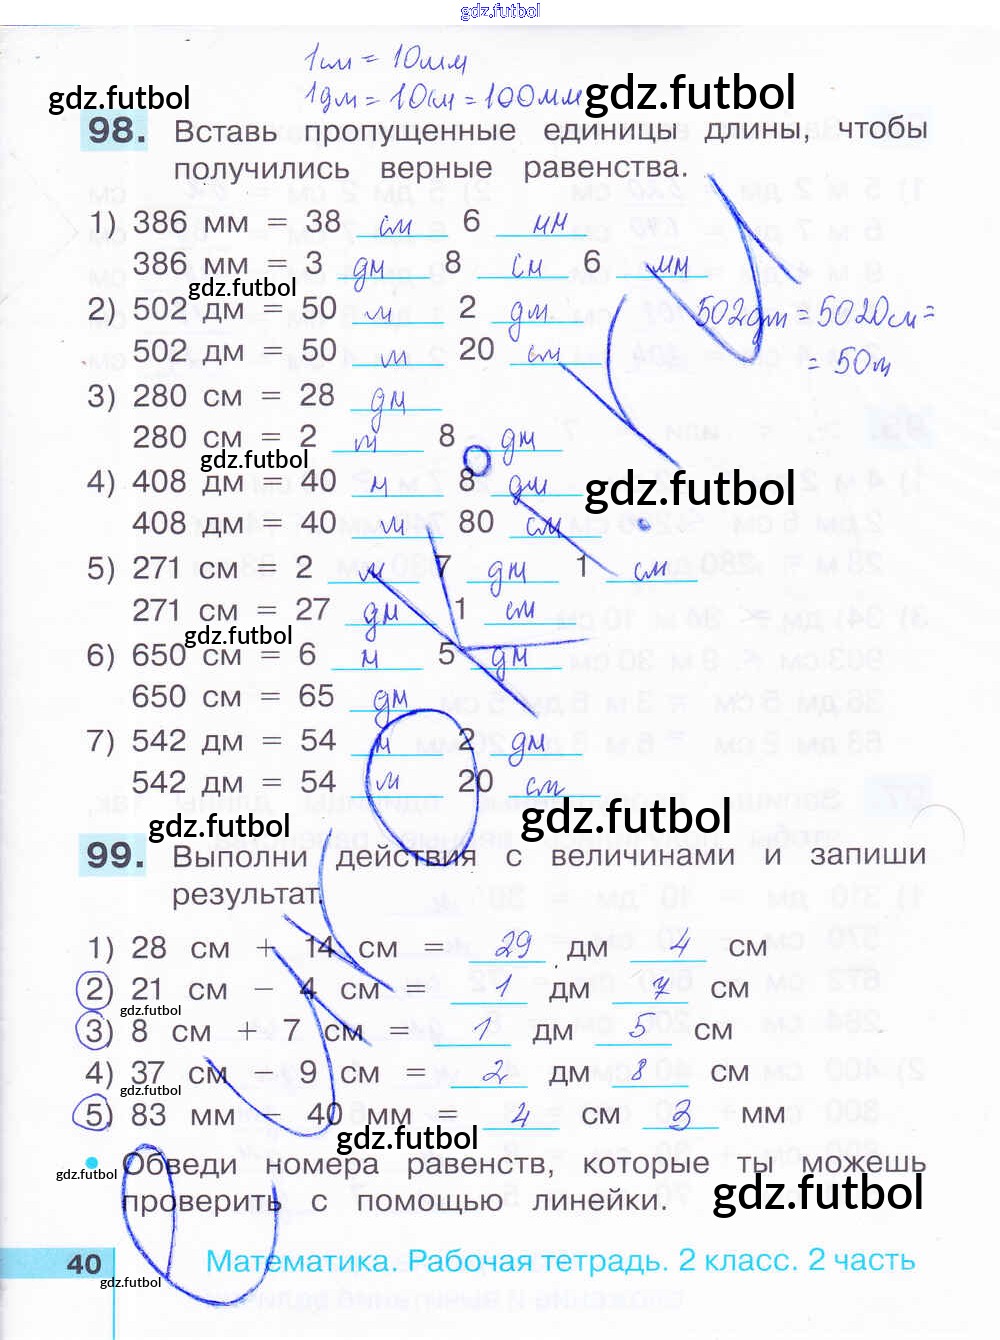 gdz.futbol
1см = 10мм
1дм = 10см = 100мм
gdz.futbol
gdz.futbol
98. Вставь пропущенные единицы длины, чтобы
получились верные равенства.
1) 386 мм = 38 см 6 мм
386 мм = 3 дм 8 см 6 мм
gdz.futbol
2) 502 дм = 50 м 2 дм
502дм = 5020см =
= 50м
502 дм = 50 м 20 см
3) 280 см = 28 дм
280 см = 2 м 8 дм
gdz.futbol
4) 408 дм = 40 м 8 дм
gdz.futbol
408 дм = 40 м 80 см
5) 271 см = 2 м 7 дм 1 см
271 см = 27 дм 1 см
gdz.futbol
6) 650 см = 6 м 5 дм
650 см = 65 дм
7) 542 дм = 54 м 2 дм
542 дм = 54 м 20 см
gdz.futbol
gdz.futbol
99. Выполни действия с величинами и запиши
результат.
1) 28 см + 14 см = 29 дм 4 см
2) 21 см − 4 см = 1 дм 7 см
gdz.futbol
3) 8 см + 7 см = 1 дм 5 см
4) 37 см − 9 см = 2 дм 8 см
gdz.futbol
5) 83 мм − 40 мм = 4 см 3 мм
gdz.futbol
• Обведи номера равенств, которые ты можешь
gdz.futbol
проверить с помощью линейки.
gdz.futbol
40 Математика. Рабочая тетрадь. 2 класс. 2 часть
gdz.futbol